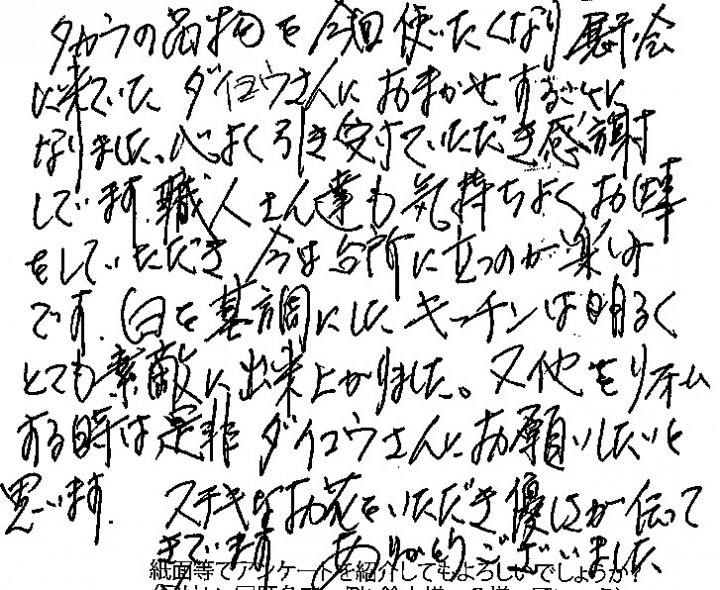 タカラの品物を今回使いたくなり展示会
に来ていた ダイコウさんにおまかせすることに
なりました。心よく引き受けていただき感謝
しています。職人さん達も気持ちよくお仕事
をしていただき 今は台所に立つのが楽しみ
です。白を基調にしたキッチンは明るく
とても素敵に出来上がりました。又他をリフォーム
する時は是非ダイコウさんにお願いしたいと
思います。 ステキなお花をいただき優しさが伝って
きています ありがとうございました
紙面等でアンケートを紹介してもよろしいでしょうか?